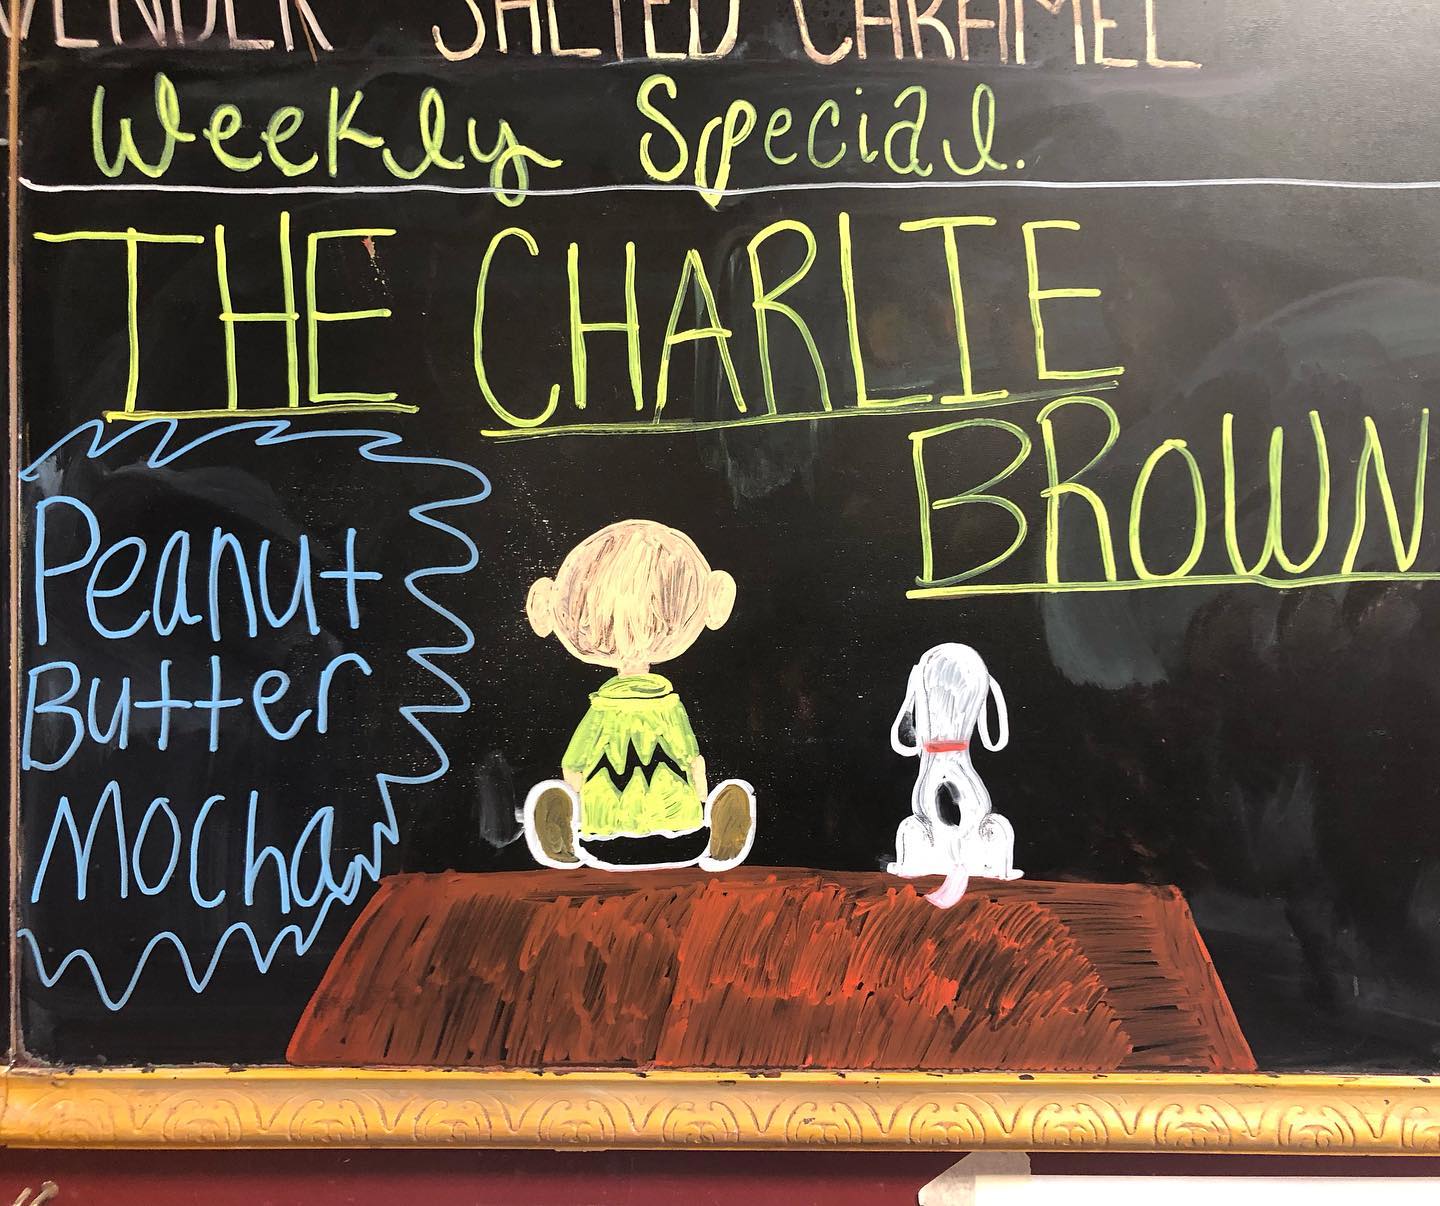 SALTED CARAMEL
Weekly Special.
THE CHARLIE
BROWN
Peanut
Butter
Mocha